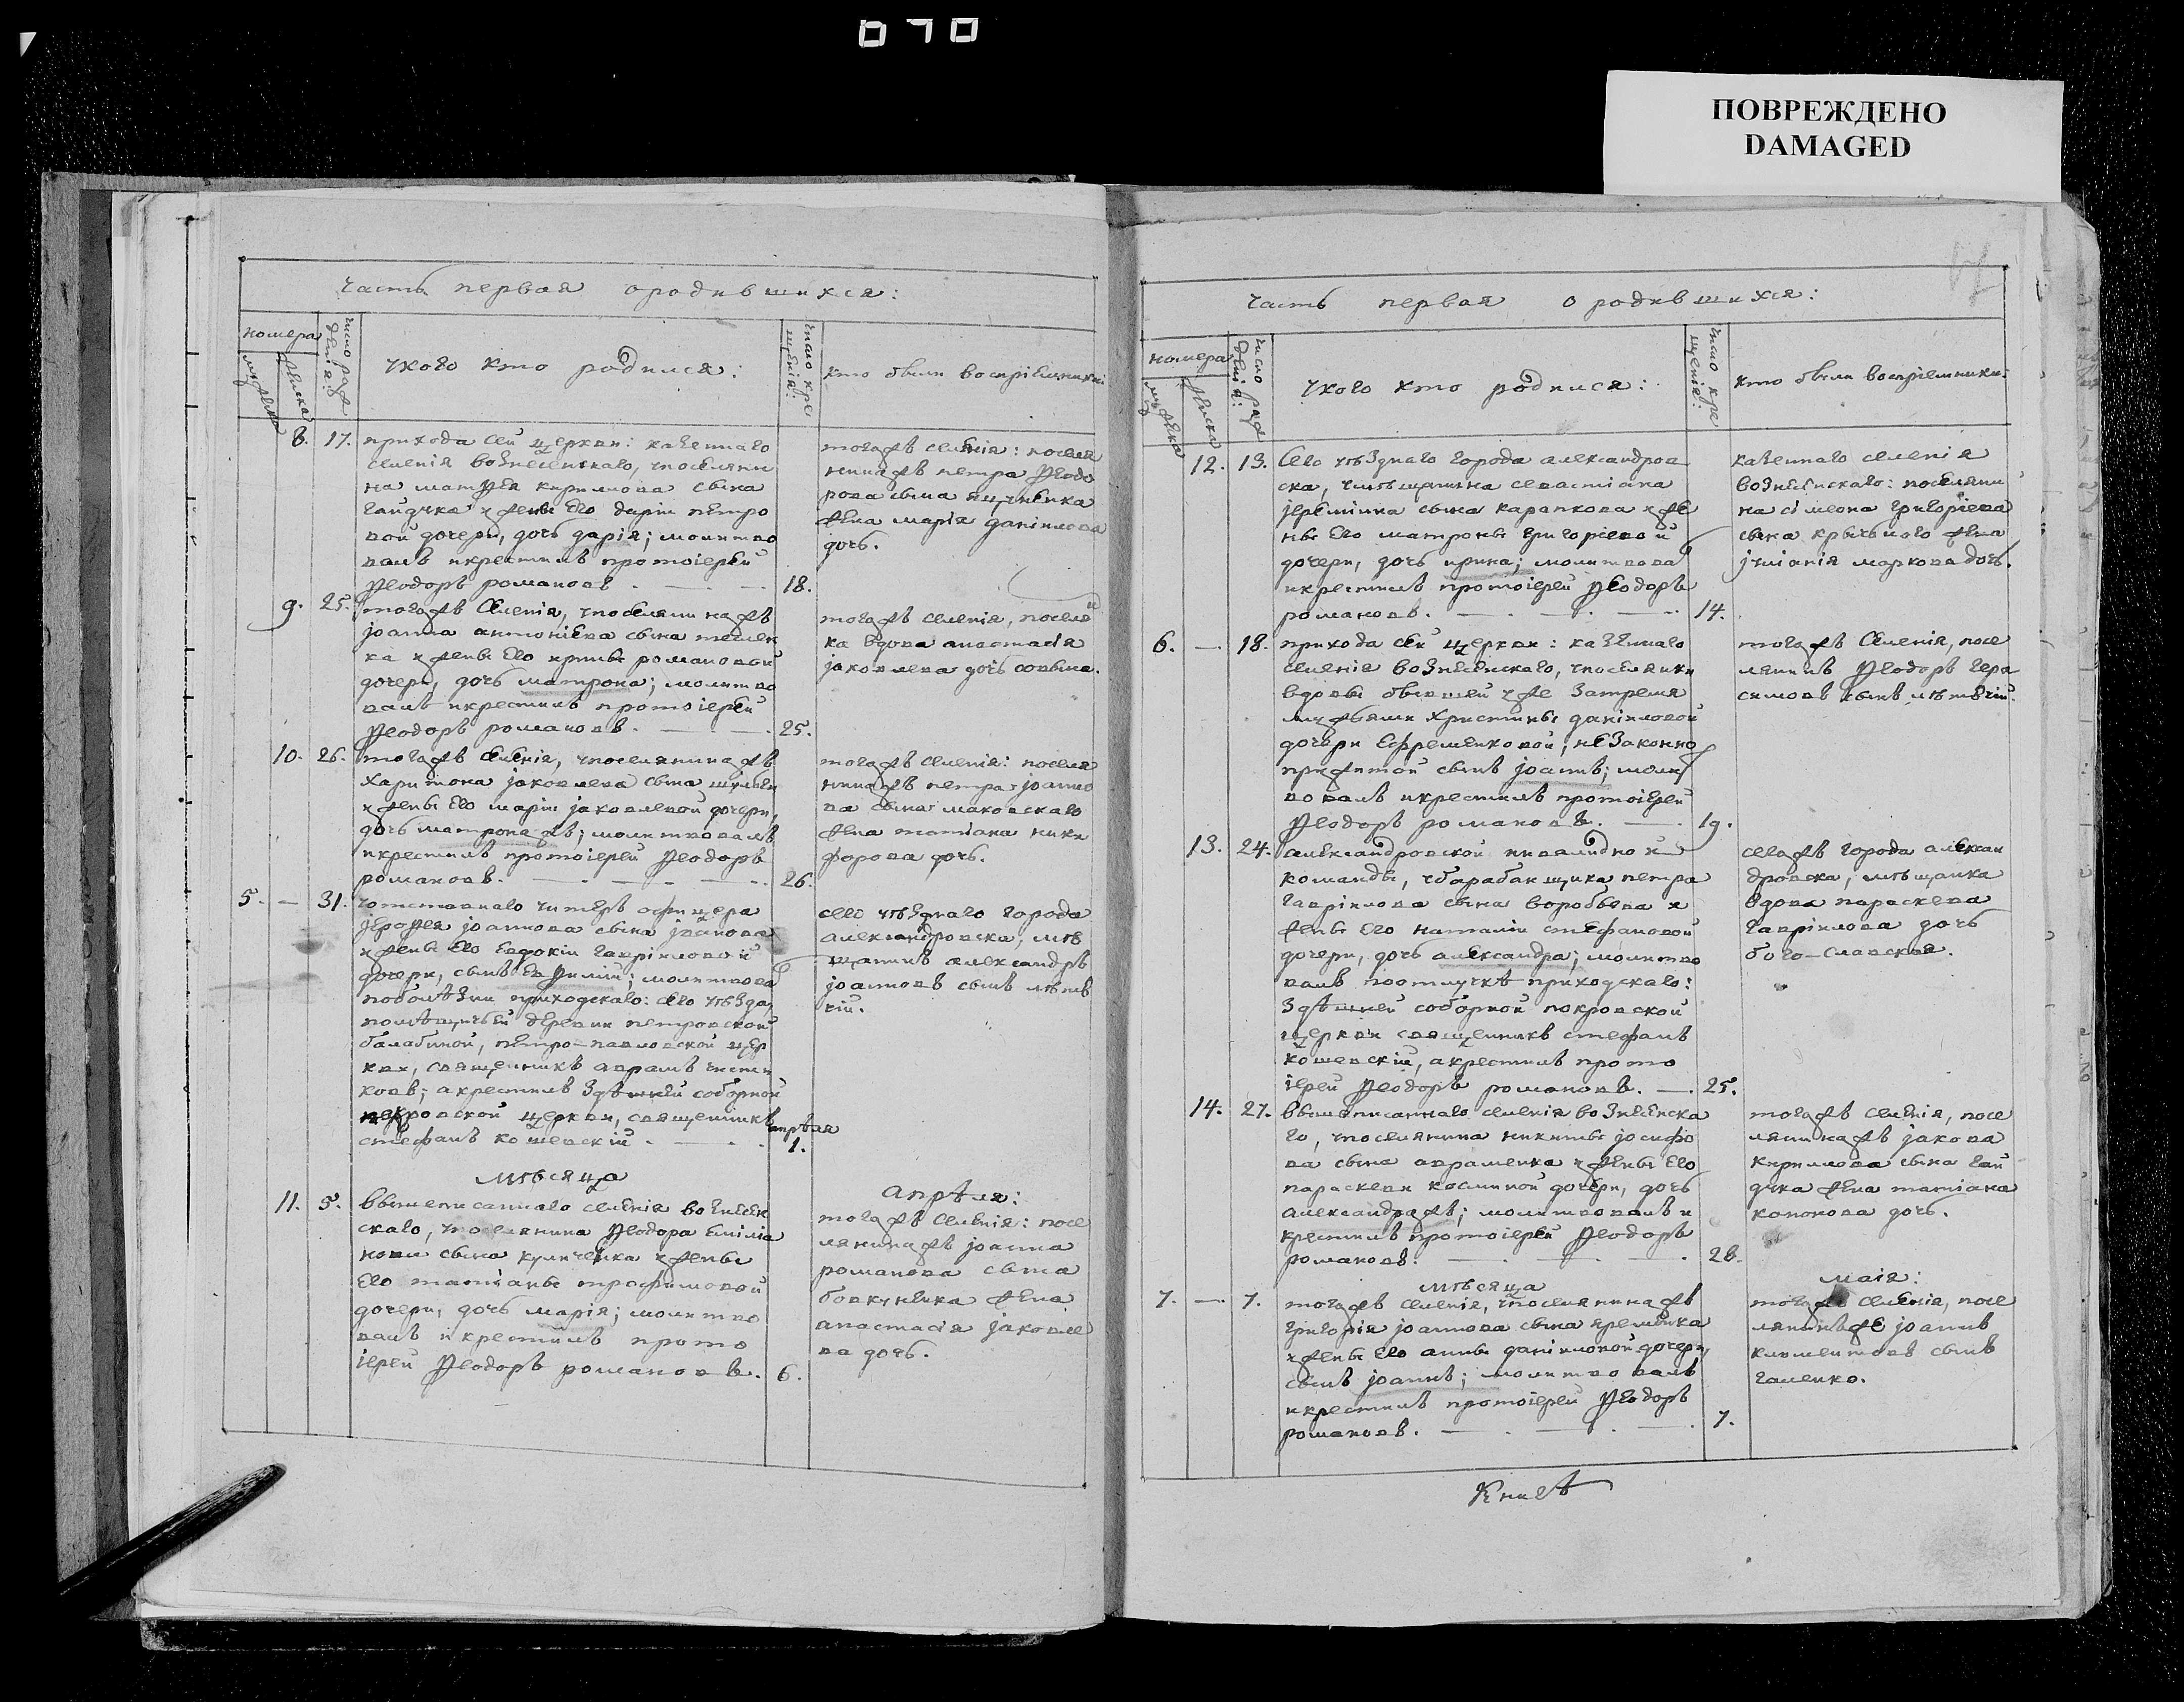 070
ПОВРЕЖДЕНО
DAMAGED
Часть первая ородившихся:
номера
мужеска
женска
число рождения:
укого кто родился:
число крещения:
кто были воспріемники:
8. 17. прихода сей церкви: казеннаго
селенія вознесенскаго, упоселяни
на матѳея кирилова сына
гайдука и жены его даріи петро
вой дочери, дочь дарія; молитво
валъ икрестилъ протоіерей
Ѳеодоръ романовъ 18.
тогожъ селенія: поселя
нинажъ петра Ѳеодо
рова сына
жена марія даніилова
дочь.
9. 25. тогожъ селенія, упоселянинажъ
іоанна антоніева сына
ка и жены его ирины романовой
дочери, дочь матрона; молитво
валъ икрестилъ протоіерей
Ѳеодоръ романовъ. 25.
тогожъ селенія, поселян
ка вдова анастасія
іаковлева дочь
10. 26. тогожъ селенія, упоселянинажъ
харитона іаковлева сына
и жены его маріи іаковлевой дочери,
дочь матронажъ; молитвовалъ
икрестилъ протоіерей Ѳеодоръ
романовъ. 26.
тогожъ селенія: поселя
нинажъ петра іоанно
ва сына маковскаго
жена татіана ники
форова дочь.
5. — 31. уотставнаго унтеръ офицера
іероѳея іоаннова сына іванова
и жены его евдокіи гавріиловой
дочери, сынъ евѳимій; молитвова
поболѣзни приходскаго: сего уѣзда,
помѣщичьей деревни петровской
балабиной, петро-павловской цер
кви, священникъ аврамъ
ковъ; акрестилъ здѣшней соборной
покровской церкви, священникъ
стефанъ кошевскій. апрѣля 1.
сего уѣзднаго города
александровска, мѣ
щанинъ александръ
іоанновъ сынъ лѣтв
чій.
мѣсяца
апрѣля:
11. 5. вышеписаннаго селенія вознесен
скаго, упоселянина Ѳеодора еміліа
нова сына куличенка и жены
его татіаны трофимовой
дочери, дочь марія; молитво
валъ икрестилъ прото
іерей Ѳеодоръ романовъ. 6.
тогожъ селенія: посе
лянинажъ іоанна
романова сына
бовкуненка жена
анастасія іаковле
ва дочь.
Часть первая о родившихся:
номера
мужеска
женска
число рождения:
укого кто родился:
число крещения:
кто были воспріемники:
12. 13. сего уѣзднаго города александров
ска, умѣщанина севастіана
іереміина сына карапкова и же
ны его матроны григоріевой
дочери, дочь ирина; молитвова
икрестилъ протоіерей Ѳеодоръ
романовъ. 14.
казеннаго селенія
вознесенскаго: поселяни
на сімеона григоріева
сына жена
іуліанія маркова дочь.
6. — 18. прихода сей церкви: казеннаго
селенія вознесенскаго, упоселянки
вдовы бывшей уже затремя
мужьями христины даніиловой
дочери ефременковой; незаконно
прижитой сынъ іоаннъ; молит
вовалъ икрестилъ протоіерей
Ѳеодоръ романовъ. 19.
тогожъ селенія, посе
лянинъ Ѳеодоръ гера
симовъ сынъ
13. 24. александровской инвалидной
команды, убарабанщика петра
гавріилова сына воробьева и
жены его наталіи стефановой
дочери, дочь александра; молитво
валъ поотлучкѣ приходскаго:
здѣшней соборной покровской
церкви священникъ стефанъ
кошевскій, акрестилъ прото
іерей Ѳеодоръ романовъ. 25.
сегожъ города алексан
дровска, мѣщанка
вдова параскева
гавріилова дочь
бого-славская.
14. 27. вышеписаннаго селенія вознесенска
го, упоселянина никиты іосифо
ва сына авраменка и жены его
параскевы косминой дочери, дочь
александражъ; молитвовалъ и
крестилъ протоіерей Ѳеодоръ
романовъ. 28.
тогожъ селенія, посе
лянинажъ іакова
кирилова сына гай
дука жена татіана
кононова дочь.
мѣсяца
маія:
7. — 7. тогожъ селенія, упоселянинажъ
григорія іоаннова сына яременка
и жены его анны даніиловой дочери,
сынъ іоаннъ; молитвовалъ
икрестилъ протоіерей Ѳеодоръ
романовъ. 7.
тогожъ селенія, посе
лянинъже іоаннъ
климентовъ сынъ
галенко.
Книгѣ